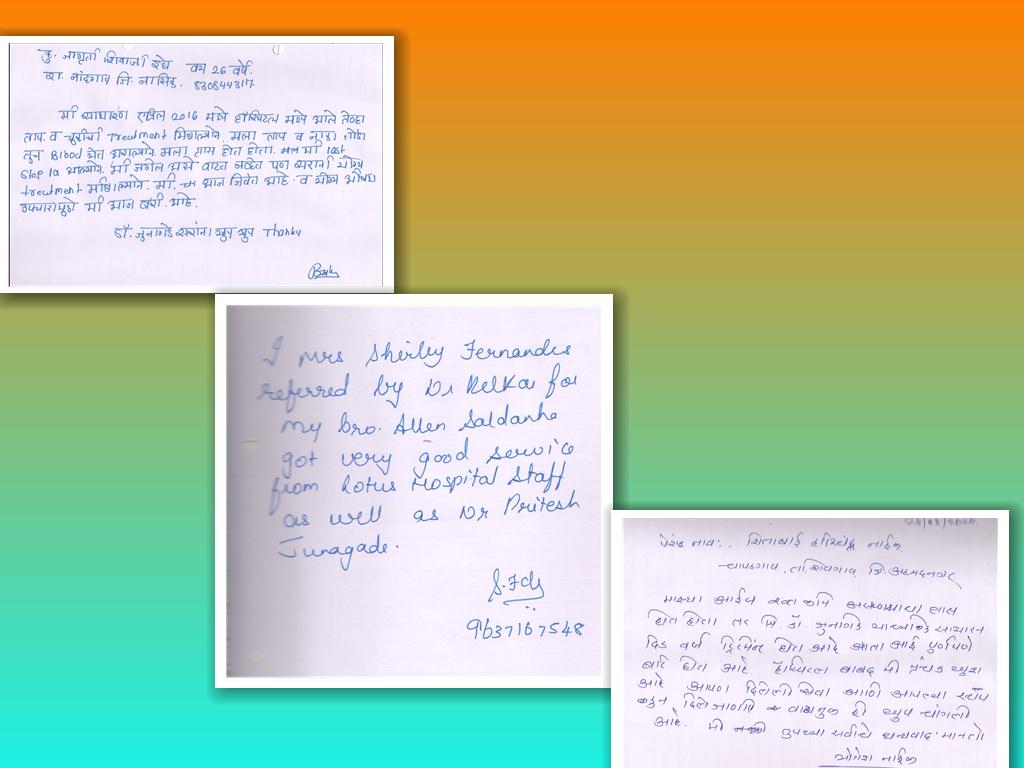 कु. जागृती शिवाजी शेथे वय 26 वर्षे.
रा. नांदगाव जि. नाशिक. 8308443117
मी साधारण एप्रिल 2016 मध्ये हॉस्पिटल मध्ये आले तेव्हा
ताप व treatment मिळाल्याने. मला ताप व
Blood येत असल्याने मला त्रास होत होता. मी last
step la आल्याने. मी जगेल असे वाटत नव्हत पण सरांनी योग्य
treatment मी आज जिवंत आहे. व योग्य औषध
उपचारामुळे मी आज बरी आहे.
डॉ. जुनागडे सरांना खुप खुप Thanku
I Mrs Shirley Fernandes
referred by Dr Kelkar for
my bro. Allen Saldanha
got very good service
from Lotus Hospital Staff
as well as Dr Pritesh
Junagade.
9637167548
पेशंट नाव:. सिताबाई हरिश्चंद्र नाईक
चापडगाव, ता. शेवगाव, जि. अहमदनगर
माझ्या आईस रक्त कमी असण्याचा त्रास
होत होता तर मि. डॉ. जुनागडे यांच्याकडे साधारन
दिड वर्ष ट्रिटमेंट होत आहे आता आई पुर्णपणे
बरी होत आहे. हॉस्पिटल बाबद मी प्रचंड खुश
आहे आपण दिलेली सेवा आणी आपल्या स्टॉप
कडुन दिले जाणारी वागणुक ही खुप चांगली
आहे. मी तुमच्या सर्वांचे धन्यवाद मानतो
योगेश नाईक